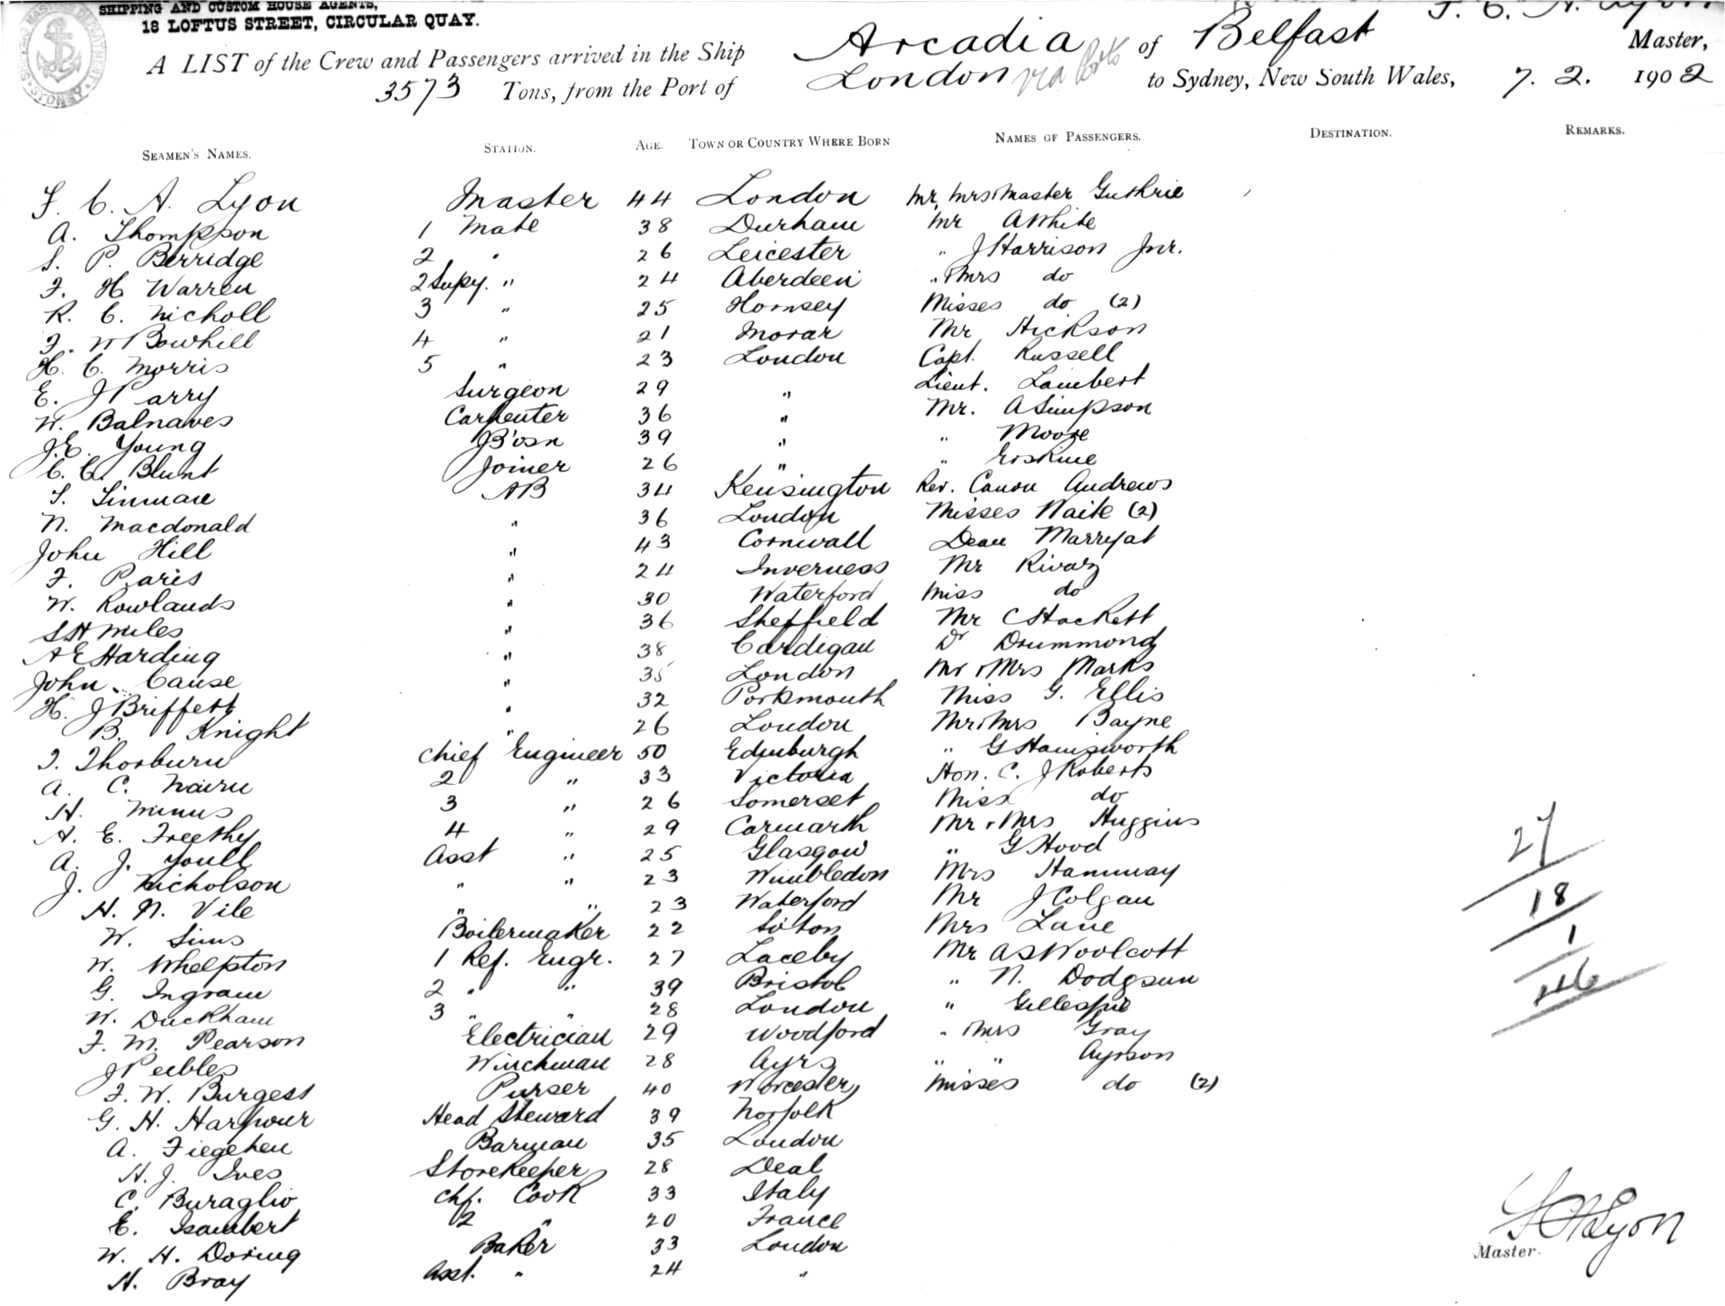 SHIPPING AND CUSTOM HOUSE AGENTS,
18 LOFTUS STREET, CIRCULAR QUAY.
A LIST of the Crew and Passengers arrived in the Ship Arcadia of Belfast Master,
3573 Tons, from the Port of London via Ports to Sydney, New South Wales, 7. 2. 1902
SEAMEN'S NAMES. STATION. AGE. TOWN OR COUNTRY WHERE BORN NAMES OF PASSENGERS. DESTINATION. REMARKS.
F. C. A. Lyon Master 44 London Mr, Mrs & Master Guthrie
A. Thompson 1 Mate 38 Durham Mr A White
S. P. Berridge 2 " 26 Leicester " J Harrison Jnr.
F. H Warren 2 Supy. " 24 Aberdeen " & Mrs do
R. C. Nicholl 3 " 25 Hornsey Misses do (2)
F. W Bowhill 4 " 21 Morar Mr Hickson
H. C. Morris 5 " 23 London Capt. Russell
E. J Parry Surgeon 29 " Lieut. Lambert
W. Balnaves Carpenter 36 " Mr. A Simpson
J.E. Young B'osn 39 " " Moore
C. C. Blunt Joiner 26 " " Erskine
S. Sinmare AB 34 Kensington Rev. Canon Andrews
N. Macdonald " 36 London Misses Waite (2)
John Hill " 43 Cornwall Dean Marryat
F. Paris " 24 Inverness Mr Rivaz
W. Rowlands " 30 Waterford Miss do
S H Miles " 36 Sheffield Mr C Hackett
A E Harding " 38 Cardigan Dr Drummond
John Cause " 35 London Mr & Mrs Marks
H. J Briffett " 32 Portsmouth Miss G. Ellis
B. Knight " 26 London Mr & Mrs Bayne
T. Thorburn Chief Engineer 50 Edinburgh " G Hainsworth
A. C. Nairn 2 " 33 Victoria Hon. C. J Roberts
H. Minns 3 " 26 Somerset Miss do
A. E. Freethy 4 " 29 Carmarth Mr & Mrs Huggins
A. J. Youll Asst " 25 Glasgow " G Hood
J. Nicholson " " 23 Wimbledon Mrs Hannay
H. N. Vile " " 23 Waterford Mr J Colgan
W. Sims Boilermaker 22 So'ton Mrs Lane
W. Whelpton 1 Ref. Engr. 27 Laceby Mr A S Woolcott
G. Ingram 2 " " 39 Bristol " N. Dodgson
W. Duckham 3 " " 28 London " Gillespie
F. M. Pearson Electrician 29 Woodford " & Mrs Gray
J Peebles Winchman 28 Ayrs " " Ayrson
F. W. Burgess Purser 40 Worcester Misses do (2)
G. H. Harpour Head Steward 39 Norfolk
A. Fiegehen Barman 35 London
H. J. Ives Storekeeper 28 Deal
C. Buraglio Chf. Cook 33 Italy
E. Isambert 2 " 20 France
W. H. Doring Baker 33 London
H. Bray Asst. " 24 "
27
18
1
46
Lyon
Master.